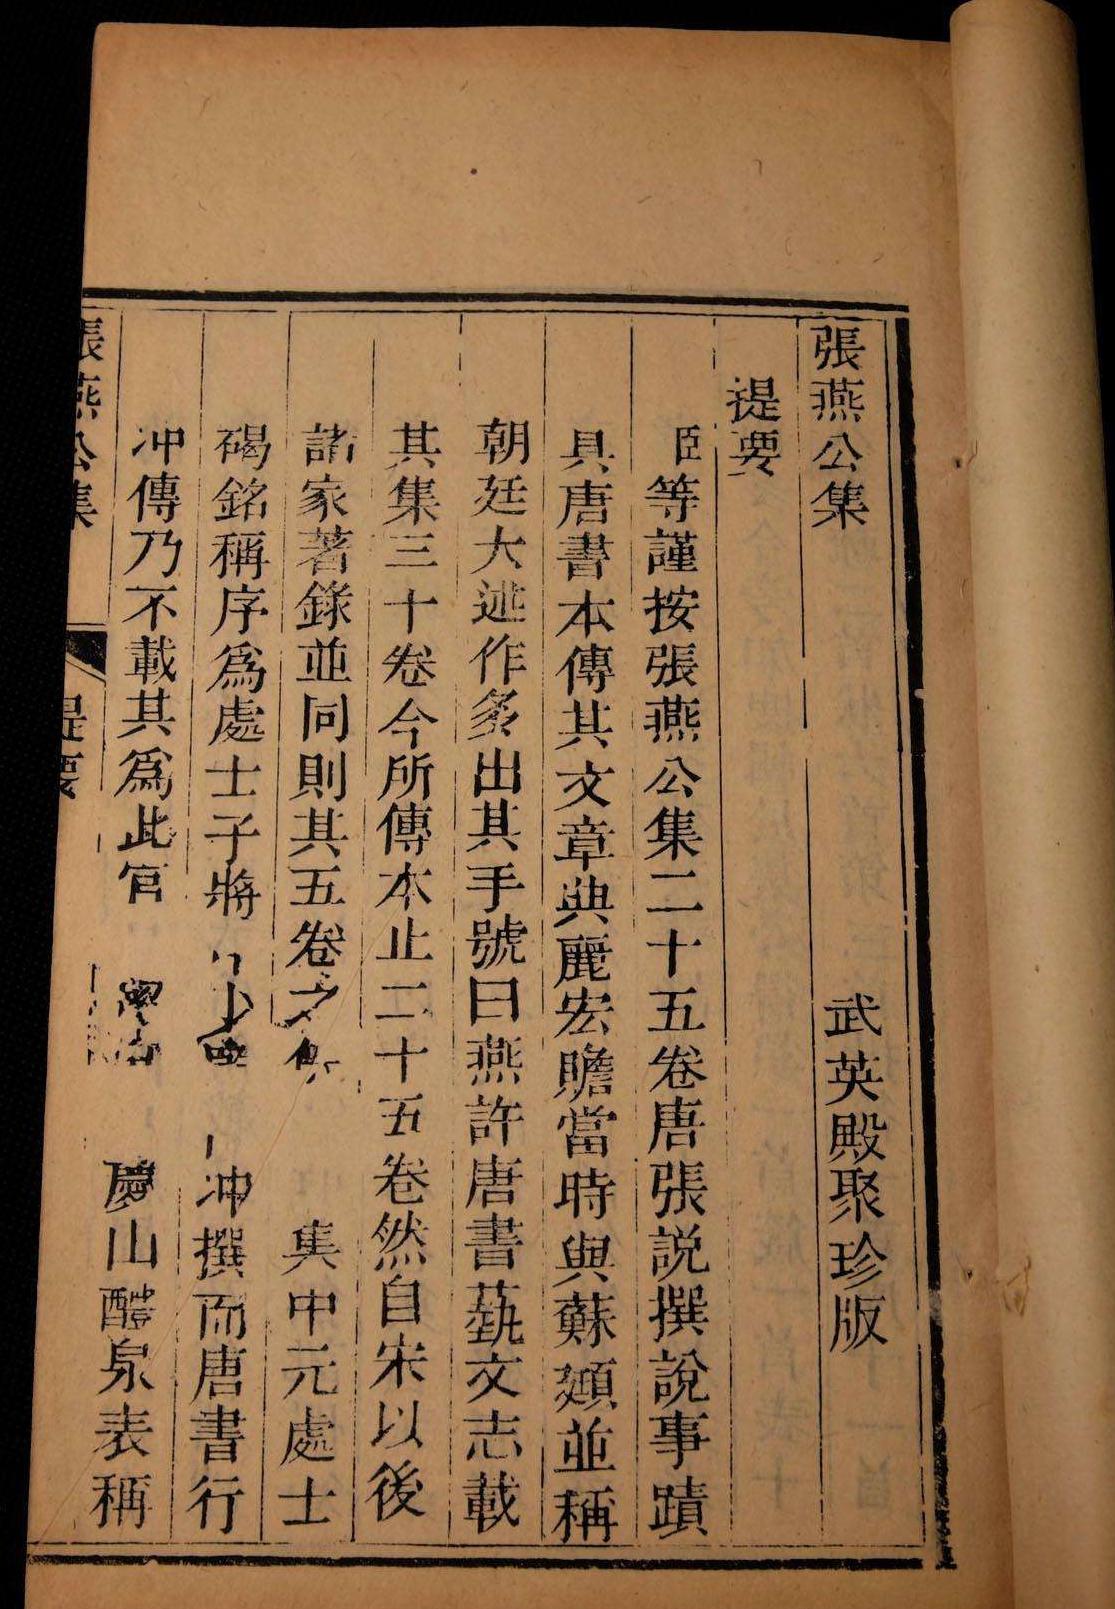 張燕公集 武英殿聚珍版
提要
臣等謹按張燕公集二十五卷唐張說撰說事蹟
具唐書本傳其文章典麗宏贍當時與蘇頲並稱
朝廷大述作多出其手號曰燕許唐書藝文志載
其集三十卷今所傳本止二十五卷然自宋以後
諸家著錄並同則其五卷之 集中元處士
碣銘稱序爲處士子將 少 冲撰而唐書行
冲傳乃不載其爲此官 慶山醴泉表稱
張燕公集 提要